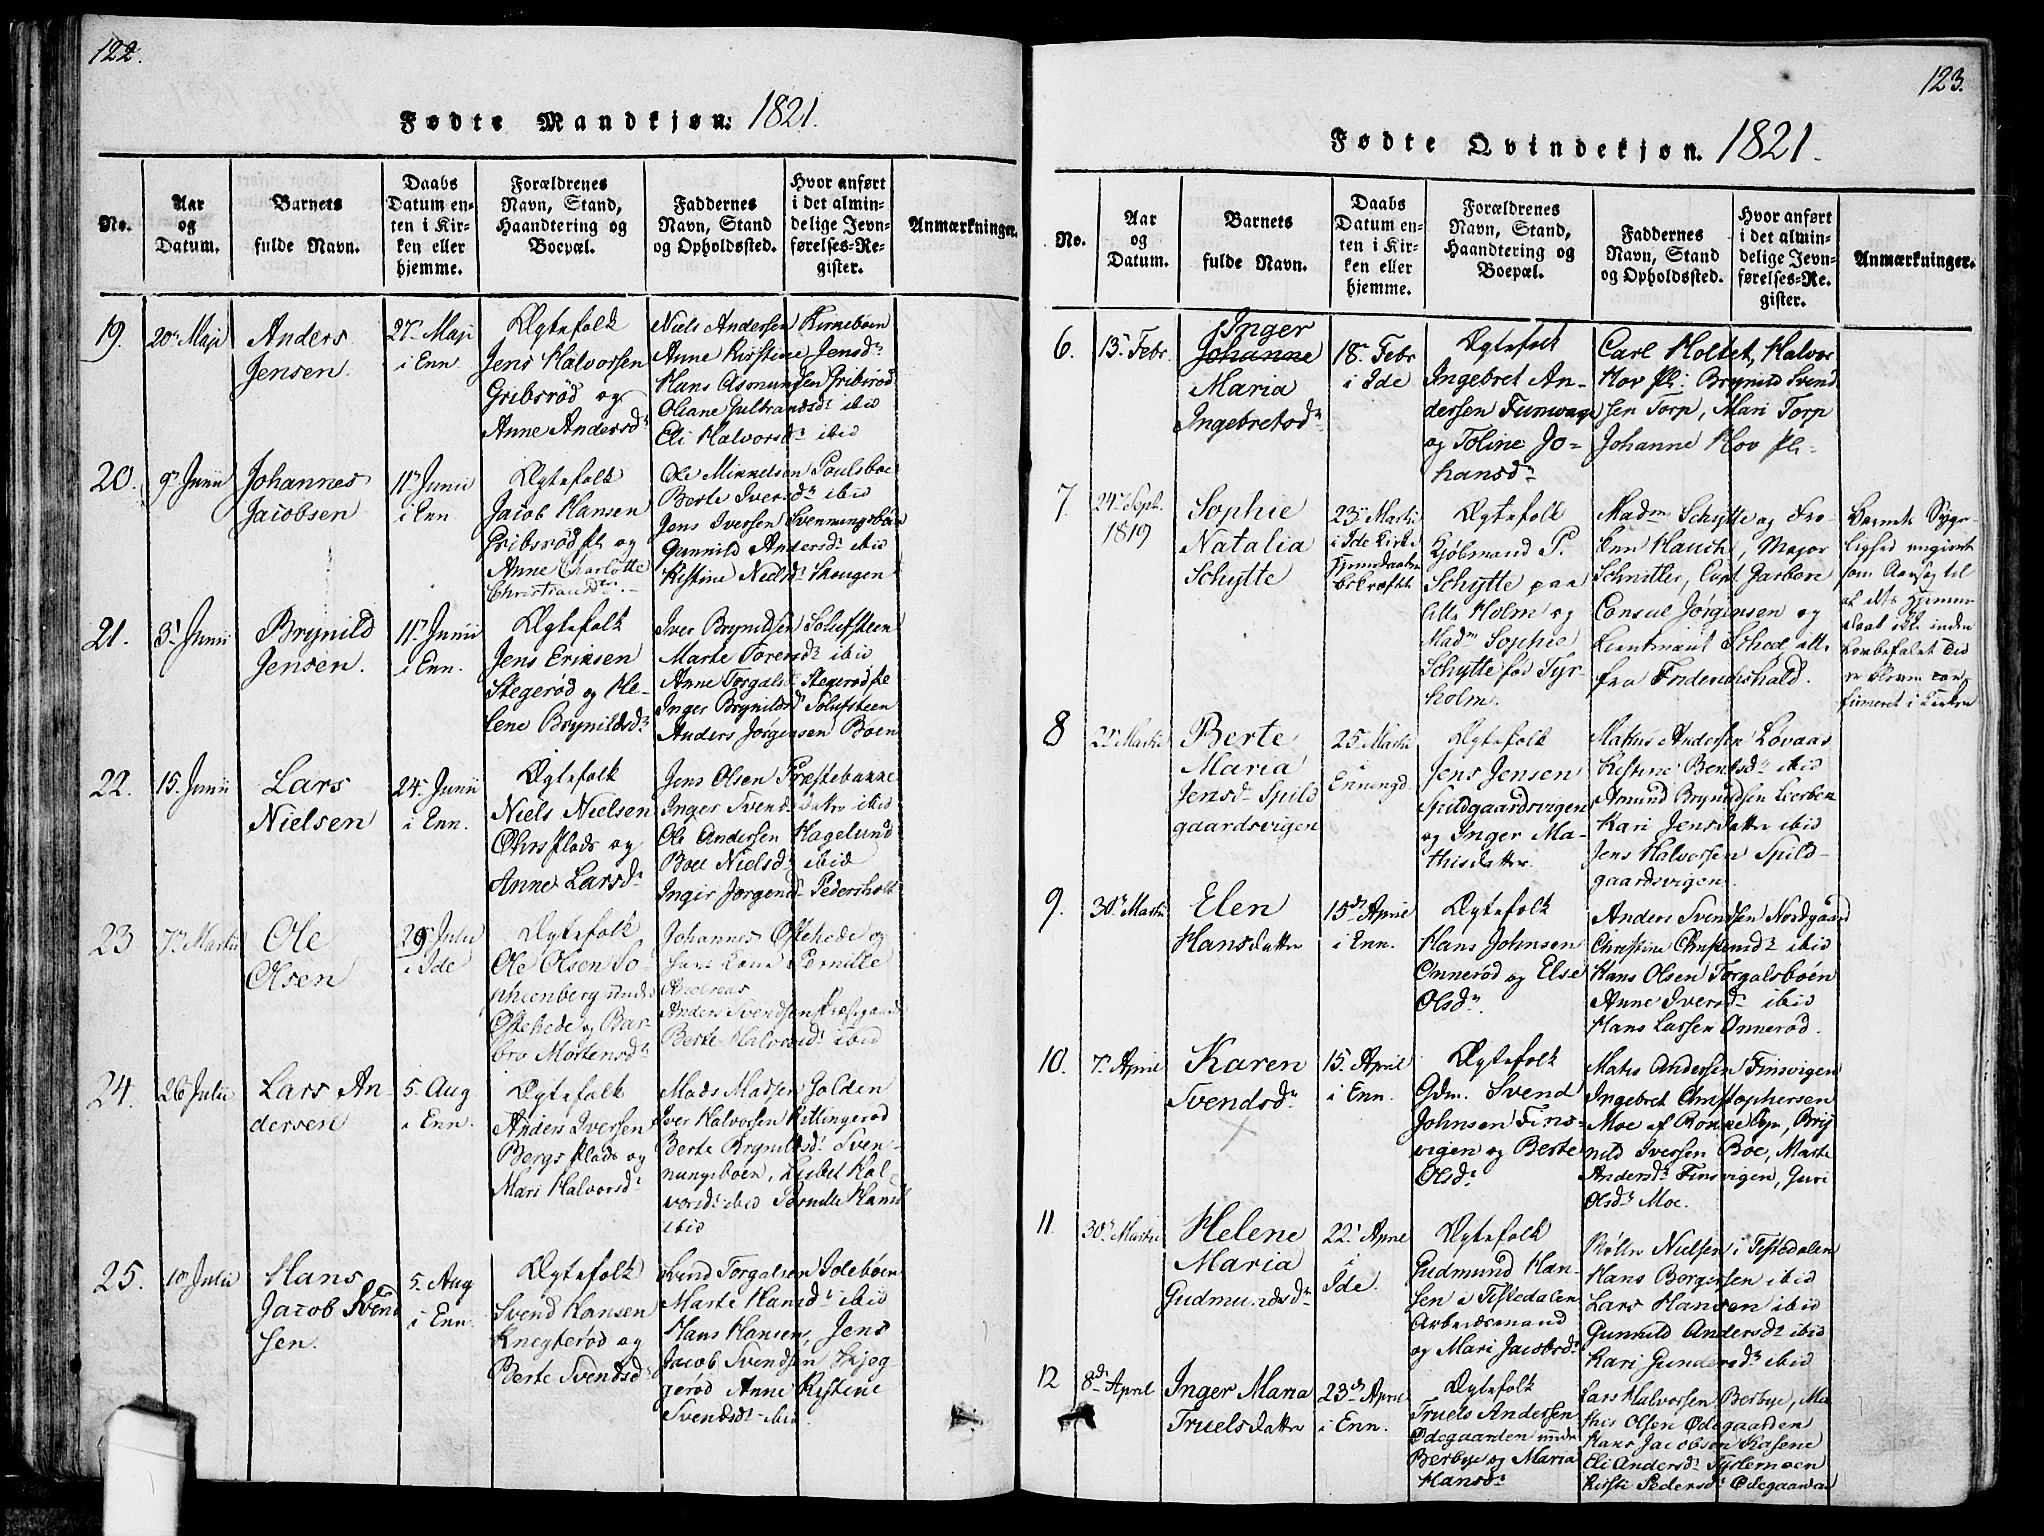 122.
Fødte Mandkjøn: 1821.
No.
Aar
og
Datum.
Barnets
fulde Navn.
Daabs
Datum en-
ten i Kir-
ken eller
hjemme.
Forældrenes
Navn, Stand,
Haandtering og
Boepæl.
Faddernes
Navn, Stand
og Opholdssted.
Hvor anført
i det almin-
delige Jevn-
førelses-Re-
gister.
Anmærkninger.
19.
20de Maji
Anders
Jensen.
27de Maji
i Enn.
Ægtefolk
Jens Halvorsen
Gribsrød og
Anne Andersdr
Niels Andersen Kirneboen
Anne Kirstine Jensdr
Hans Asmundsen Gribsrød
Oliane Gulbrandsdr ibid
Eli Halvorsdr ibid
20.
9de Junii
Johannes
Jacobsen
11te Junii
i Enn.
Ægtefolk
Jacob Hansen
Gribsrød pl. og
Anne Charlotte
Christiansdr.
Ole Mikkelsen Paulsboe
Berte Iversdr ibid
Jens Iversen Svenningsboen
Gunnild Andersdr ibid
Kistine Nielsdr Skougen
21.
3die Junii
Brynild
Jensen.
11te Junii
i Enn.
Ægtefolk
Jens Eriksen
Stegerød og He-
lene Brynildsdr
Iver Brynildsen Solufsteen
Marte Toresdr ibid
Anne Torgalsdr Stegerød pl
Inger Brynildsdr Solufsteen
Anders Jørgensen Boen
22.
15. Junii
Lars
Nielsen
24de Junii
i Enn.
Ægtefolk
Niels Nielsen
og
Anne Larsdr
Jens Olsen Præstebakke
Inger Svendsdatter ibid
Ole Andersen Hagelund
Boel Nielsdr ibid
Inger Jørgensdr Pedersholt
23
7de Martii
Ole
Olsen
29 Julii
i Ide
Ægtefolk
Ole Olsen So-
phienberg under
Østehede og Bar-
bro Mortensdr
Johannes Østehede og
Pernille
Andreas
Anders Svendsen Præstegaard
Berte Halvorsdr ibid
24.
26 Julii
Lars An-
dersen
5. Aug
i Enn.
Ægtefolk
Anders Iversen
Bergs Plads og
Mari Halvorsdr
Mads Madsen Golden
Iver Halvorsen Kitlingerød
Berte Brynildsdr Sven-
nungsboen, Lisbet Hal-
vorsdr ibid Pernille Hansd
ibid
25.
10 Julii
Hans
Jacob Svend
sen.
5. Aug
i Enn.
Ægtefolk
Svend Hansen
Knegterød og
Berte Svendsdr
Svend Torgalsen Ideboen
Marte Hansdr ibid
Hans Hansen, Jens
Jacob Svendsen Skjeg
gerød Anne Kistine
Svendsdr ibid
123.
Fødte Qvindekjøn. 1821.
No.
Aar
og
Datum.
Barnets
fulde Navn.
Daabs
Datum en-
ten i Kir-
ken eller
hjemme.
Forældrenes
Navn, Stand,
Haandtering og
Boepæl.
Faddernes
Navn, Stand
og Opholdssted.
Hvor anført
i det almin-
delige Jevn-
førelses-Re-
gister.
Anmærkninger.
6.
13de Febr.
Inger
Johanne
Maria
Ingebretsdr
18. Febr
i Ide
Ægtefolk
Ingebret An-
dersen
og Toline Jo-
hansdr
Carl Holtet, Halvor
Hov pl: Brynild Svend
sen Torp, Mari Torp
Johanne Hov pl:
7.
24de Sept.
1819
Sophie
Natalia
Schytte
23de Martii
i Ide Kirke
Hjemmedaaben
bekræftet
Ægtefolk
Kjøbmand P.
Schytte paa
lille Holm og
Madm Sophie
Schytte fød Syr-
holm.
Madm Schytte og Frø-
ken Hauch, Major
Schnitler, Capt. Garben
Consul Jørgensen og
Lieutnant Sched, alle
fra Friderichshald.
Barnets Syge-
lighed angivet
som Aarsag til
at dets Hjemme
daab ikke inden
Lovbefalet Tid
er bleven con-
firmeret i Kirken
8
22 Martii
Berte
Maria
Jensdr Spild
gaardsvigen
25. Martii
i
Enningd.
Ægtefolk
Jens Jensen
Spildgaardsvigen
og Inger Ma-
thisdatter.
Mathis Andersen Lovaas
Kistine Bentsdr ibid
Asmund Brynildsen
Kari Jensdatter ibid
Jens Halvorsen Spild-
gaardsvigen.
9.
30de Martii
Elen
Hansdatter
15de April
i Enn.
Ægtefolk
Hans Johnsen
Onnerød og Else
Olsdr.
Anders Svendsen Nordgaard
Christine Christensdr ibid
Hans Olsen Torgalsboen
Anne Iversdr ibid
Hans Larsen Onnerød.
10.
7de April
Karen
Svendsdr
15. April
i Enn.
Ægtefolk
Gdm. Svend
Johnsen Fins-
vigen og Berte
Olsdr
Mats Andersen Finsvigen
Ingebret Christophersen
Moe af Sogn, Bryn
nild Iversen Boe, Marte
Andersdr Finsvigen, Guri
Olsdr Moe.
11.
30de Martii
Helene
Maria
Gudmundsdr
22. April
i
Ide.
Ægtefolk
Gudmund Han-
sen i Tistedalen
Arbeidsmand
og Mari Jacobsdr
Nielsen i Tistedalen
Hans Borgersen ibid
Lars Hansen ibid
Gunnild Andersdr ibid
Kari Gundersdr ibid
12
8de April
Inger Maria
Truelsdatter
23de April
i Enn.
Ægtefolk
Truels Andersen
Ødegaarden under
Berbye og Maria
Hansdr
Lars Halvorsen Berbye, Ma
this Olsen Ødegaarden
Hans Jacobsen Kasene
Eli Andersdr
Kirsti Pedersdr Ødegaarden